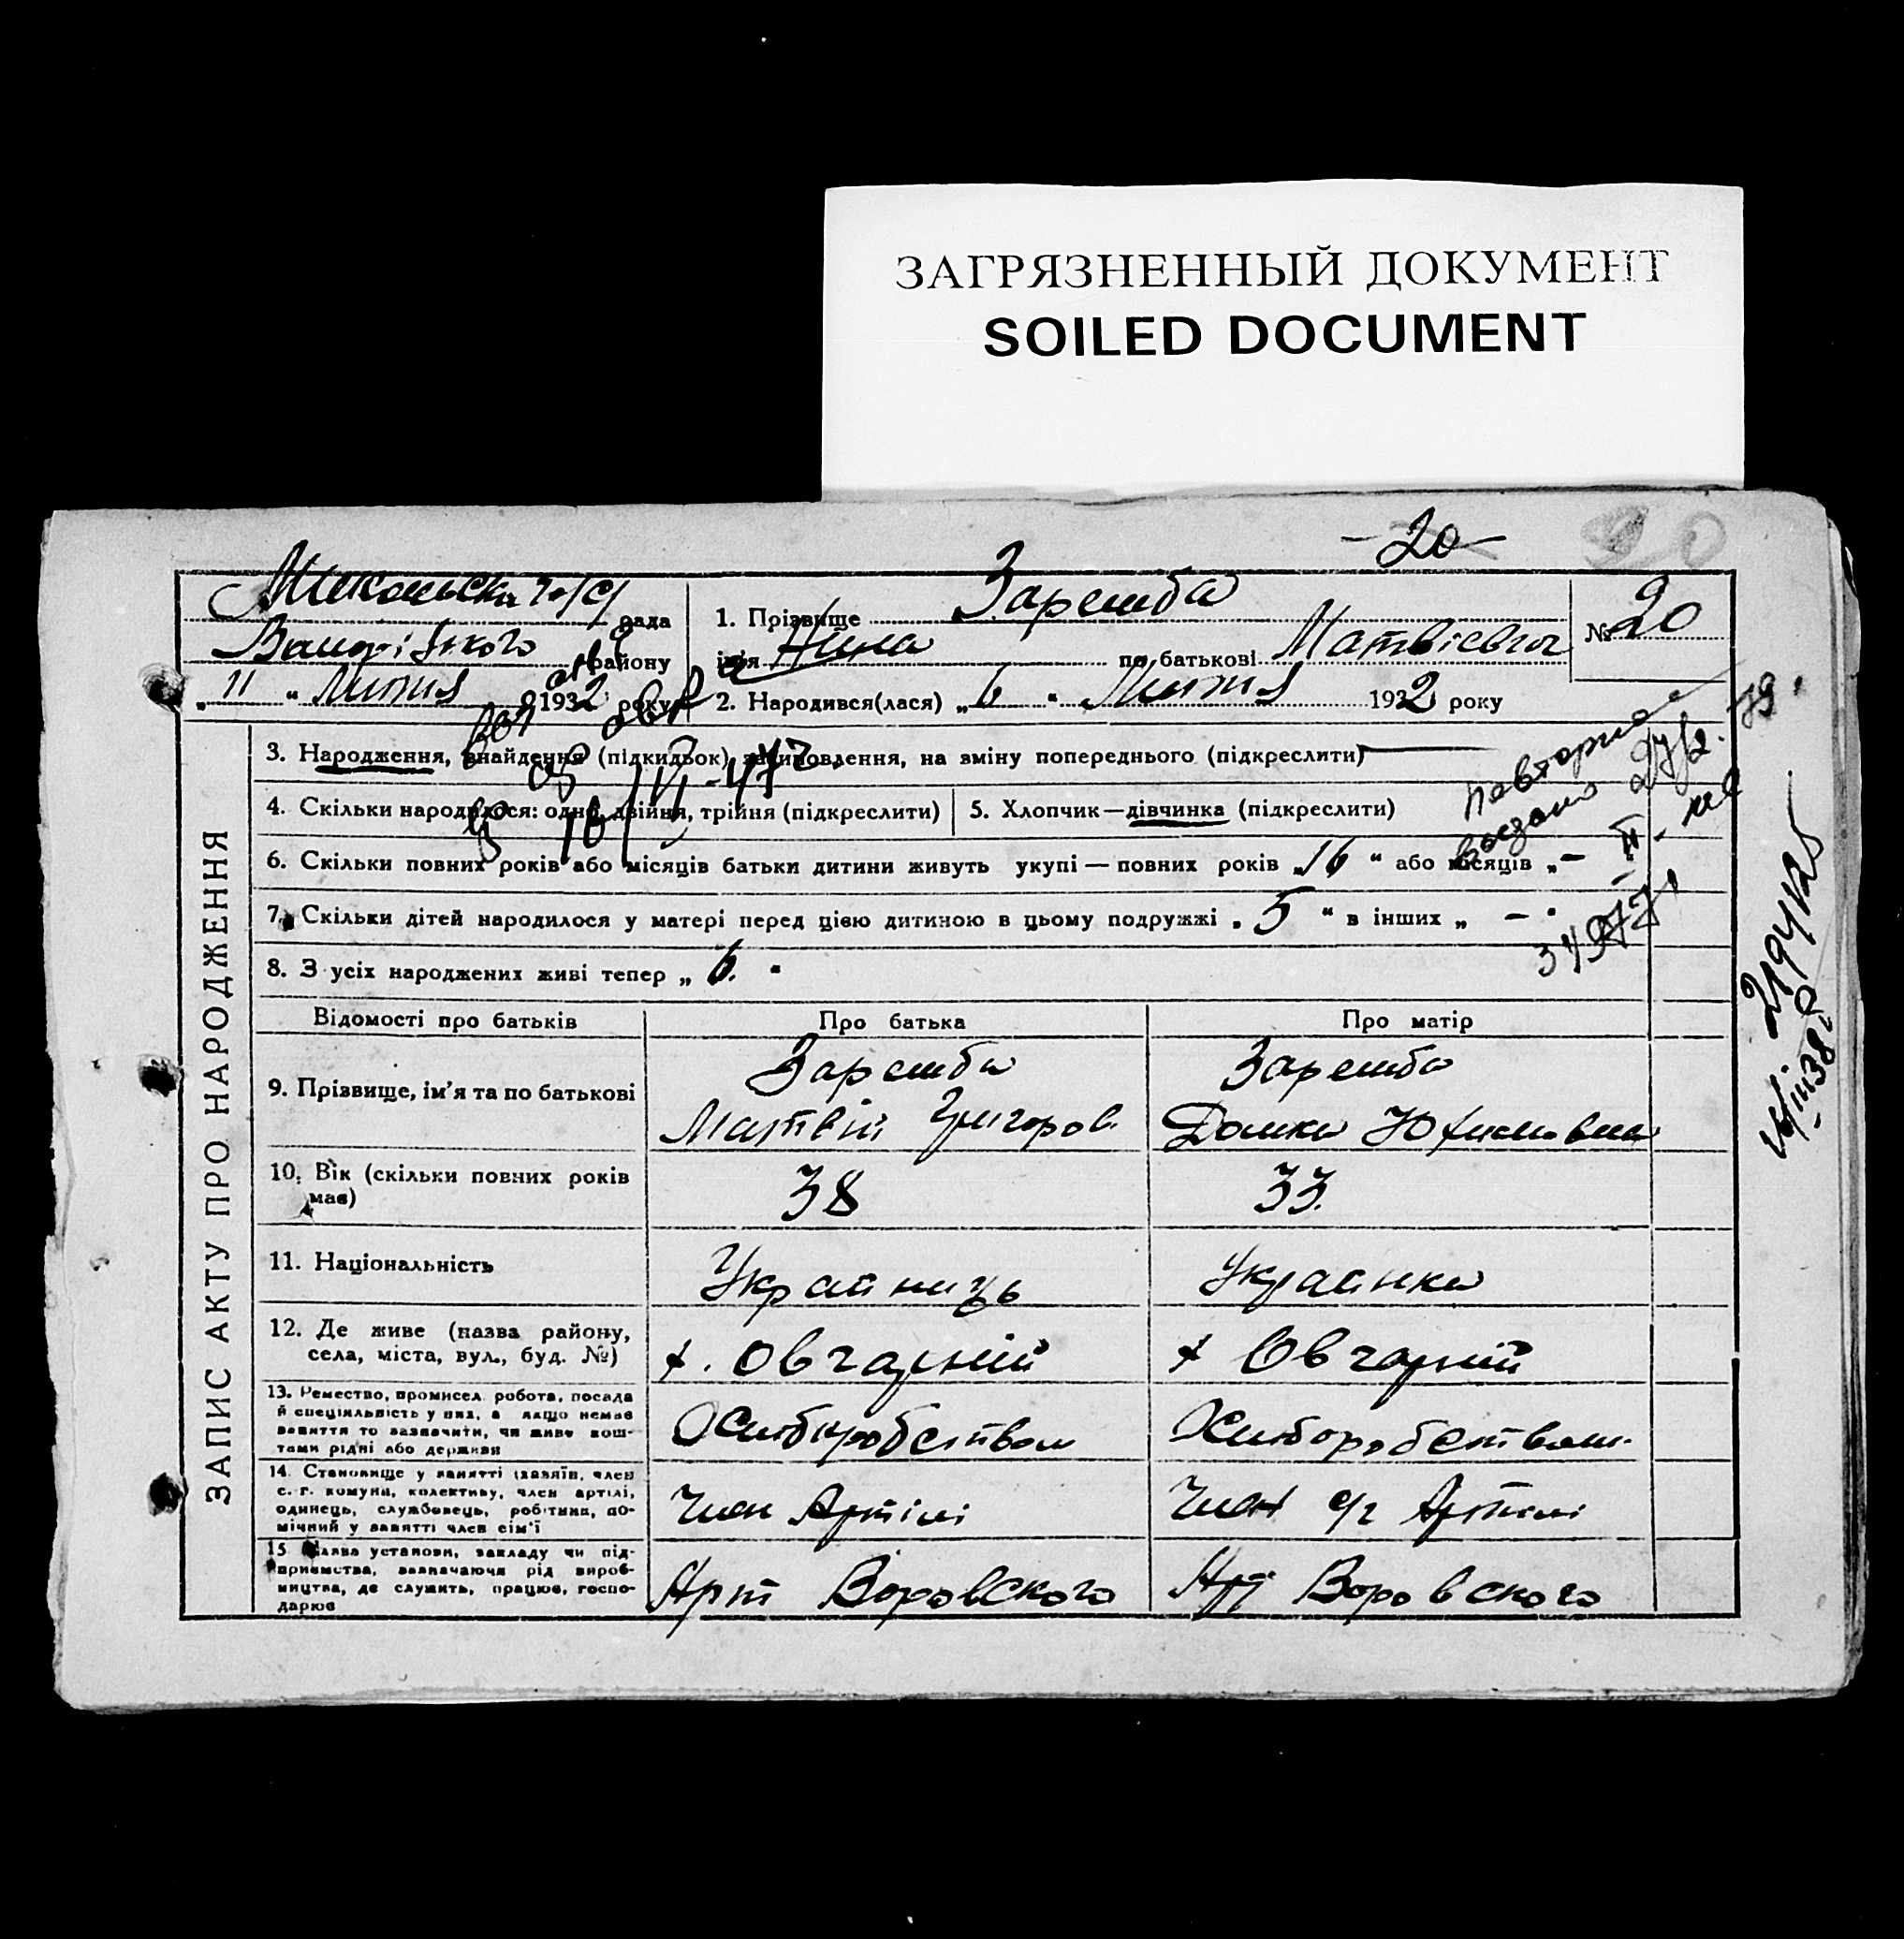 ЗАГРЯЗНЕННЫЙ ДОКУМЕНТ
SOILED DOCUMENT
-20-
20
рада
району
„ 11 “ Липня 1932 року
1. Прізвище Заремба
ім'я Нина по батькові Матвієвна
2. Народився(лася) „ 6 “ Липня 1932 року
№ 20
ЗАПИС АКТУ ПРО НАРОДЖЕННЯ
3. Народження, знайдення (підкидьок) усиновлення, на зміну попереднього (підкреслити)
4. Скільки народилося: одно, двійня, трійня (підкреслити)
5. Хлопчик — дівчинка (підкреслити)
6. Скільки повних років або місяців батьки дитини живуть укупі — повних років „ 16 “ або місяців „ —
7. Скільки дітей народилося у матері перед цією дитиною в цьому подружжі „ 5 “ в інших „ — “
8. З усіх народжених живі тепер „ 6. “
Відомості про батьків
Про батька
Про матір
9. Прізвище, ім'я та по батькові
Заремба
Матвій Григоров.
Заремба
Домка Юхимовна
10. Вік (скільки повних років
має)
38
33.
11. Національність
Украйниць
Украинка
12. Де живе (назва району,
села, міста, вул., буд. №)
х. Овчарний
х Овчарний
13. Ремество, промисел, робота, посада
й спеціяльність у них, а якщо немає
заняття то зазначити, чи живе кош-
тами рідні або держави
14. Становище у занятті (хазяїн, член
с.-г. комуни, колективу, член артілі,
одинець, службовець, робітник, по-
мічний у занятті член сім'ї
Член Артілі
Член с/г Артілі
15. Назва установи, закладу чи під-
приємства, зазначаючи рід вироб-
ництва, де служить, працює, госпо-
дарює
Арт Воровского
Арт Воровского
повторное
выдано